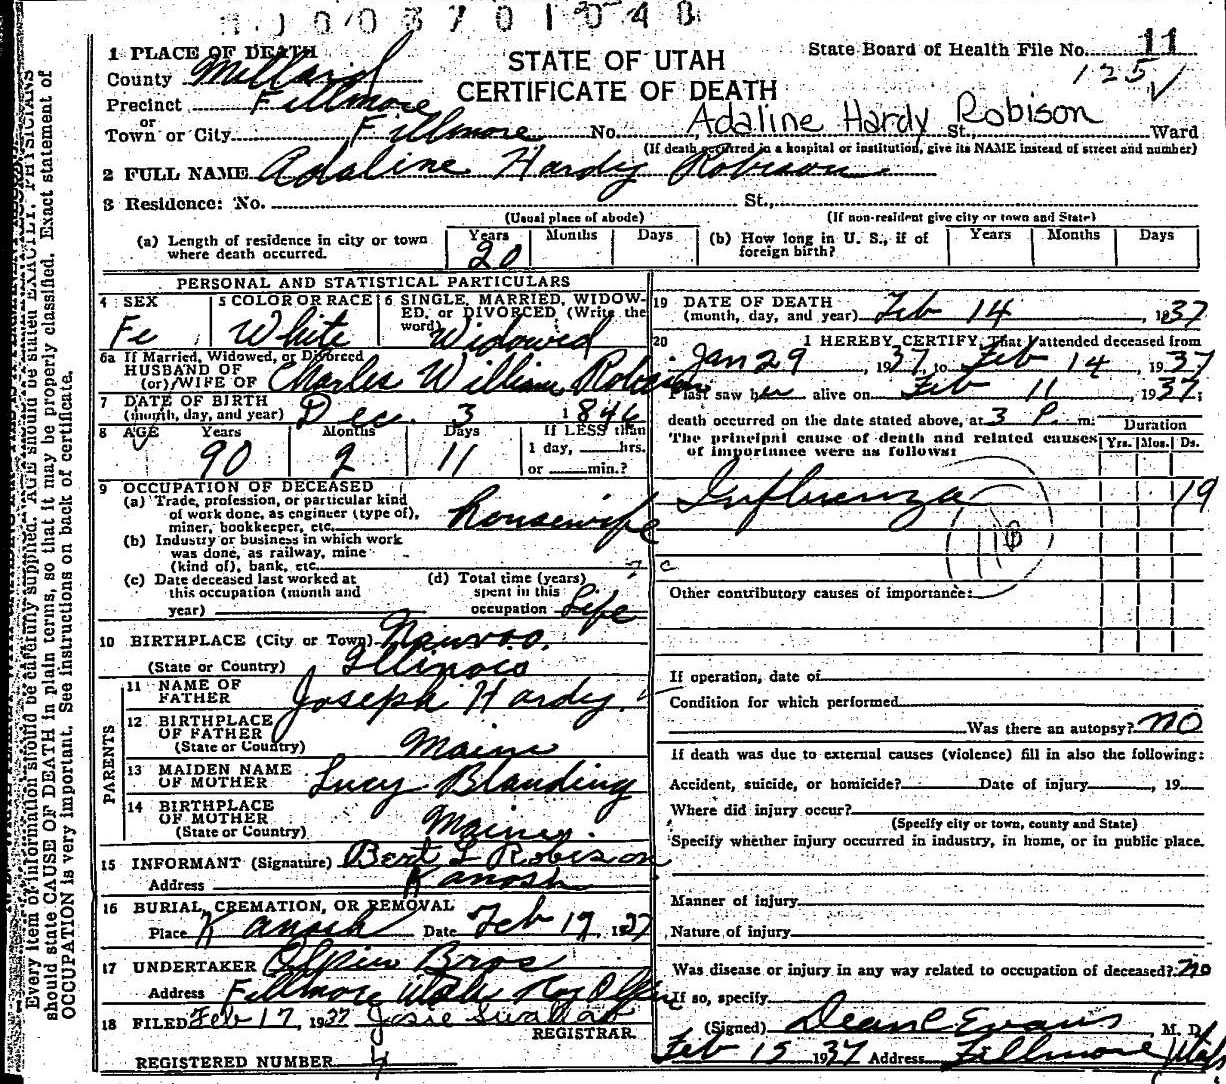 1 0 0 3 7 0 1 0 4 8
1 PLACE OF DEATH
County Millard
Precinct Fillmore
or
Town or City Fillmore No. St., Ward
STATE OF UTAH
CERTIFICATE OF DEATH
State Board of Health File No. 11
125
Adaline Hardy Robison
(If death occurred in a hospital or institution, give its NAME instead of street and number)
2 FULL NAME Adaline Hardy Robison
3 Residence: No. St.,
(Usual place of abode) (If non-resident give city or town and State)
(a) Length of residence in city or town where death occurred. Years 20 Months Days
(b) How long in U. S., if of foreign birth? Years Months Days
PERSONAL AND STATISTICAL PARTICULARS
4 SEX Fe
5 COLOR OR RACE White
6 SINGLE, MARRIED, WIDOWED, or DIVORCED (Write the word) Widowed
6a If Married, Widowed, or Divorced
HUSBAND OF
(or) WIFE OF Charles William Robison
7 DATE OF BIRTH
(month, day, and year) Dec. 3 1846
8 AGE Years 90 Months 2 Days 11 If LESS than
1 day, hrs.
or min.?
9 OCCUPATION OF DECEASED
(a) Trade, profession, or particular kind
of work done, as engineer (type of),
miner, bookkeeper, etc. Housewife
(b) Industry or business in which work
was done, as railway, mine
(kind of), bank, etc.
(c) Date deceased last worked at
this occupation (month and
year)
(d) Total time (years)
spent in this
occupation Life
10 BIRTHPLACE (City or Town) Nauvoo.
(State or Country) Illinois
PARENTS
11 NAME OF
FATHER Joseph Hardy
12 BIRTHPLACE
OF FATHER
(State or Country) Maine
13 MAIDEN NAME
OF MOTHER Lucy Blanding
14 BIRTHPLACE
OF MOTHER
(State or Country) Maine.
15 INFORMANT (Signature) Bert L Robison
Address Kanosh
16 BURIAL, CREMATION, OR REMOVAL
Place Kanosh Date Feb 17, 1937
17 UNDERTAKER Olpin Bros
Address Fillmore Utah Roy Olpin
18 FILED Feb 17, 1937 Josie Swallow
REGISTRAR
REGISTERED NUMBER 4
19 DATE OF DEATH
(month, day, and year) Feb 14, 1937
20 I HEREBY CERTIFY, That I attended deceased from
Jan 29, 1937, to Feb 14, 1937
I last saw her alive on Feb 11, 1937;
death occurred on the date stated above, at 3 P. m.
The principal cause of death and related causes
of importance were as follows:
Duration
Yrs. Mos. Ds.
Influenza 19
Other contributory causes of importance:
If operation, date of
Condition for which performed
Was there an autopsy? no
If death was due to external causes (violence) fill in also the following:
Accident, suicide, or homicide? Date of injury , 19
Where did injury occur?
(Specify city or town, county and State)
Specify whether injury occurred in industry, in home, or in public place.
Manner of injury
Nature of injury
Was disease or injury in any way related to occupation of deceased? no
If so, specify
(Signed) Dean C Evans, M. D.
Feb 15 1937 Address Fillmore Utah
Every item of information should be carefully supplied. AGE should be stated EXACTLY. PHYSICIANS
should state CAUSE OF DEATH in plain terms, so that it may be properly classified. Exact statement of
OCCUPATION is very important. See instructions on back of certificate.